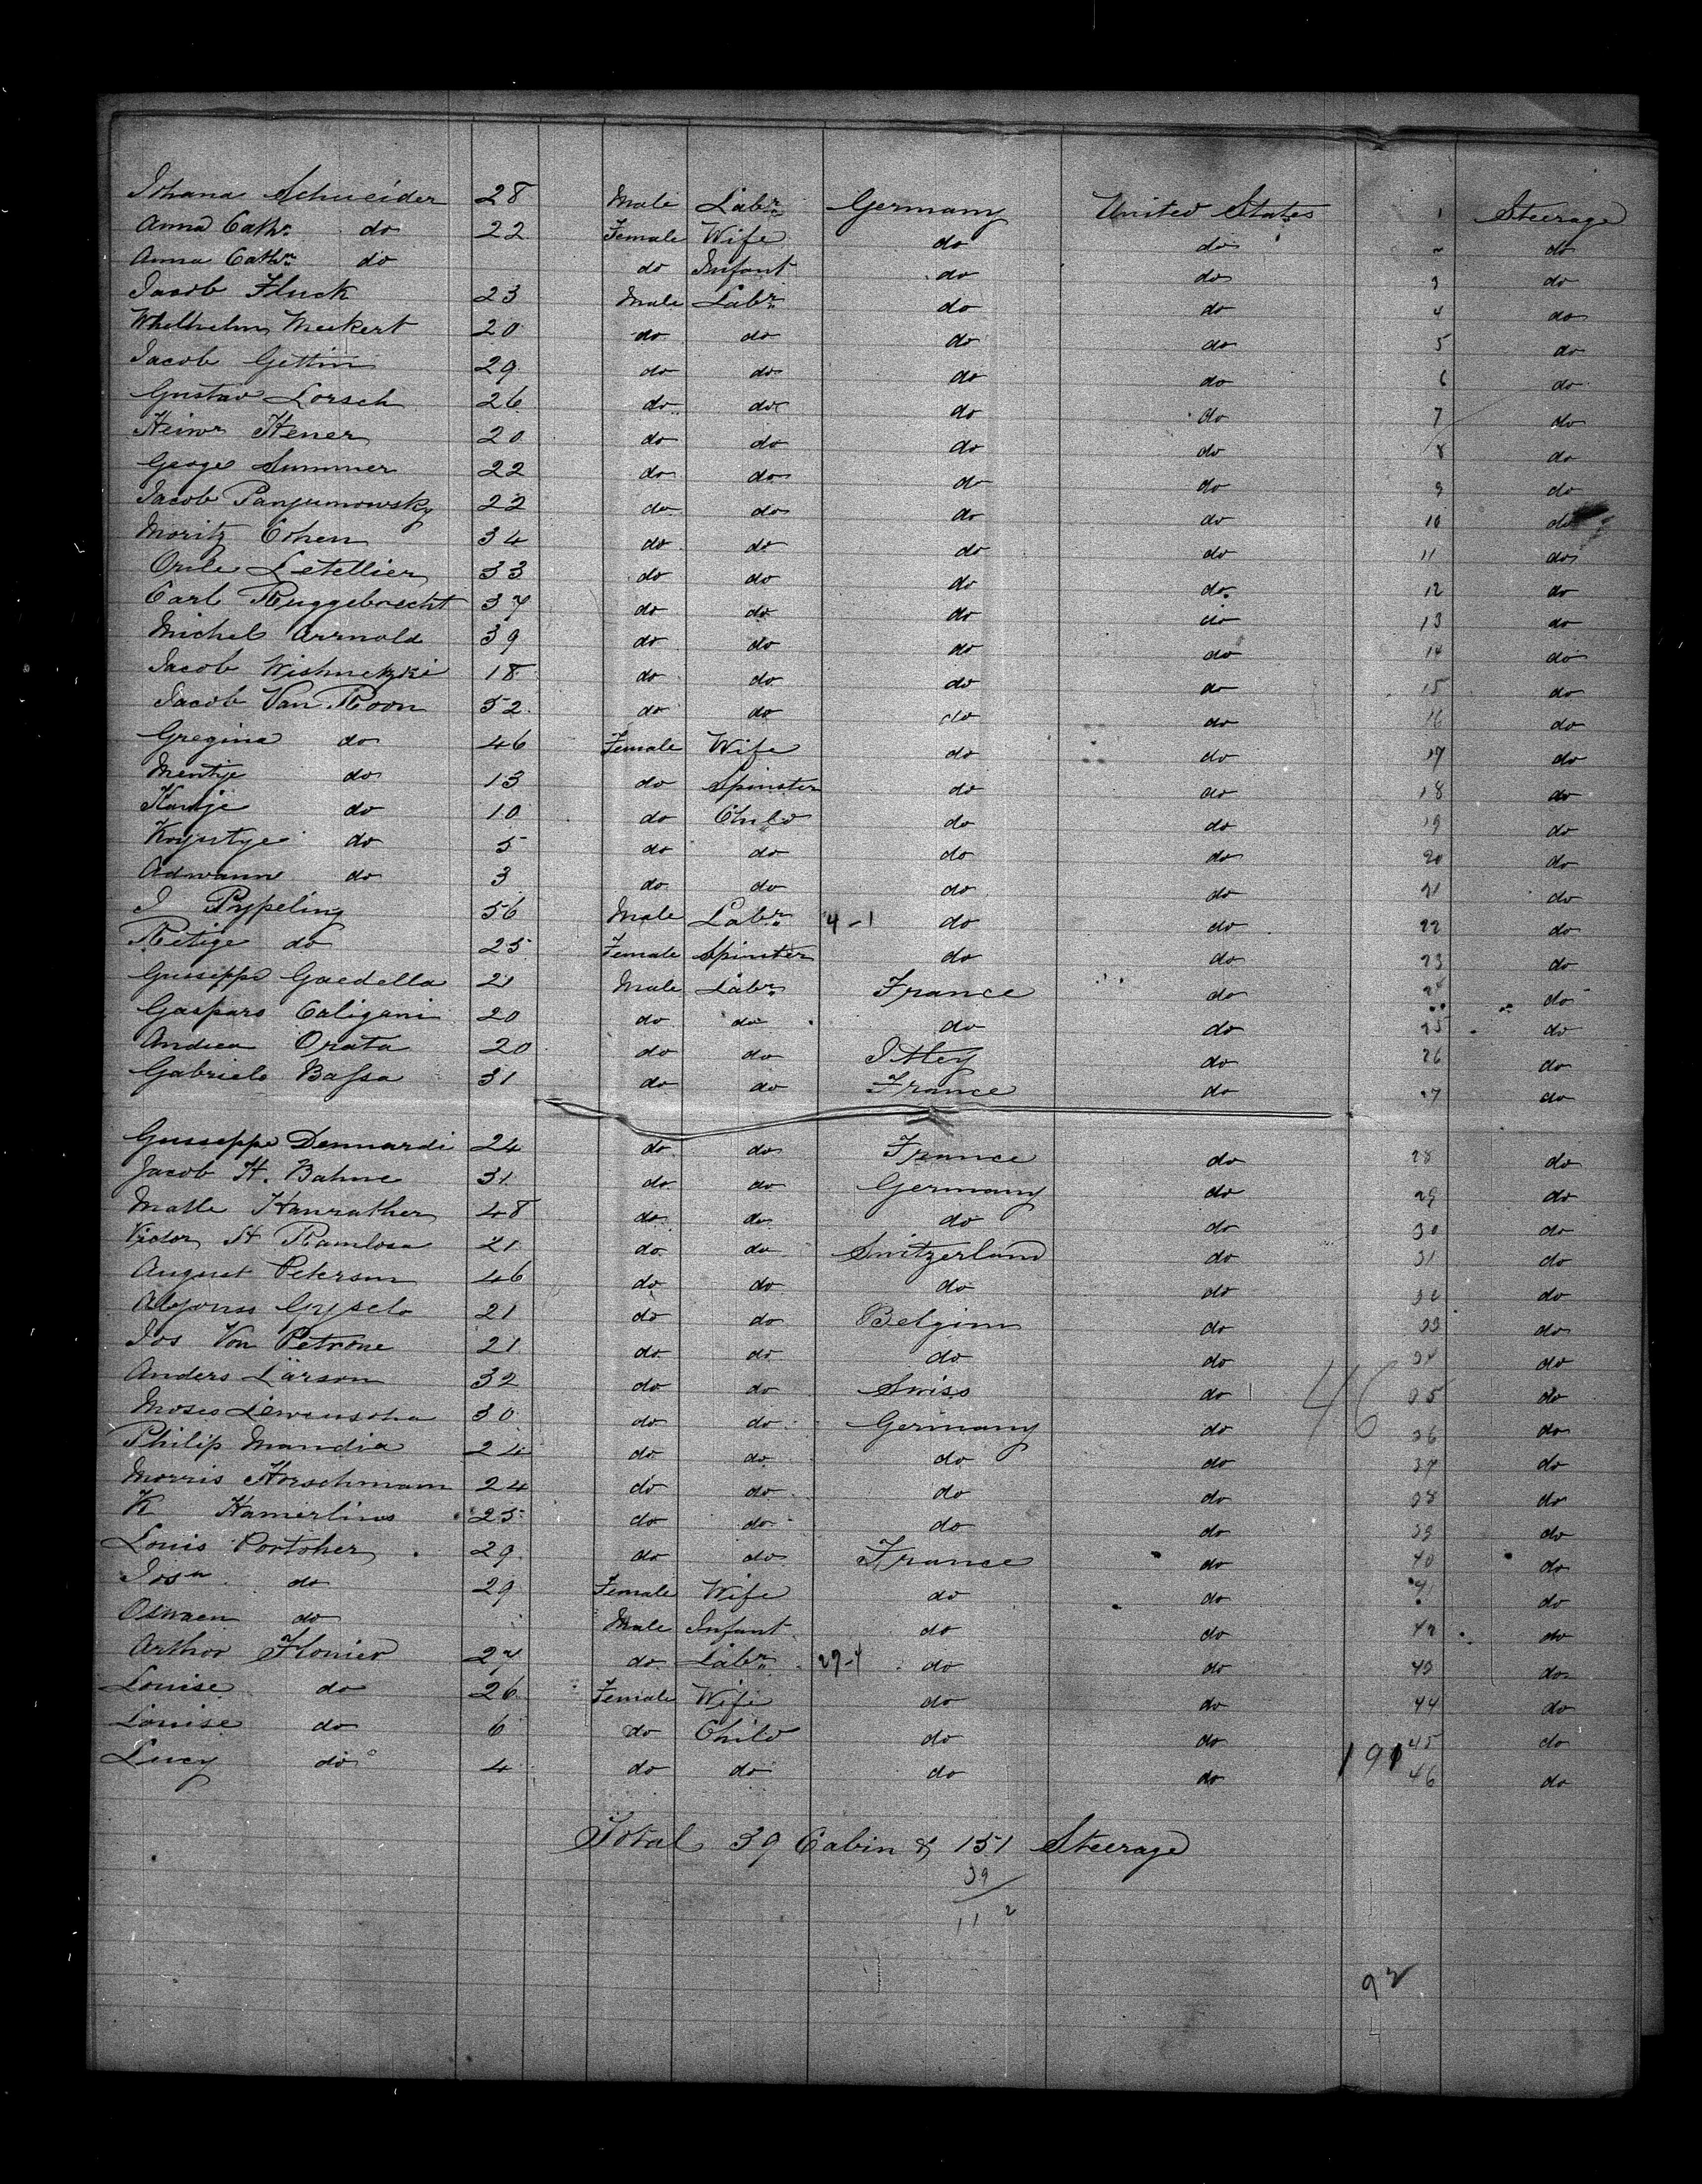 Johana Schneider 28 Male Labr Germany United States 1 Steerage
Anna Cathr do 22 Female Wife do do 2 do
Anna Cathr do do Infant do do 3 do
Jacob Fluck 23 Male Labr do do 4 do
Whelhelm Meekert 20 do do do do 5 do
Jacob Gettin 29 do do do do 6 do
Gustav Lorsch 26 do do do do 7 do
Heinr Hener 20 do do do do 8 do
Geoge Summer 22 do do do do 9 do
Jacob Panjumowsky 22 do do do do 10 do
Moritz Cohen 34 do do do do 11 do
Onile Letellier 33 do do do do 12 do
Carl Ruggebrecht 37 do do do do 13 do
Michel Arrnold 39 do do do do 14 do
Jacob Wishnetzki 18 do do do do 15 do
Jacob Van Roon 52 do do do do 16 do
Gregina do 46 Female Wife do do 17 do
Mentje do 13 do Spinster do do 18 do
Kantje do 10 do Child do do 19 do
Knyutye do 5 do do do do 20 do
Adwanne do 3 do do do do 21 do
J Pypeling 56 Male Labr 4-1 do do 22 do
Retige do 25 Female Spinster do do 23 do
Guseppe Gaedella 21 Male Labr France do 24 do
Gasparo Caligani 20 do do do do 25 do
Andrea Orata 20 do do Itley do 26 do
Gabriele Bassa 31 do do France do 27 do
Gusseppe Dennardi 24 do do France do 28 do
Jacob H. Bahne 31 do do Germany do 29 do
Matle Hanrather 48 do do do do 30 do
Victor H Ramlosa 21 do do Switzerland do 31 do
August Peterson 46 do do do do 32 do
Alfonss Gyselo 21 do do Belgium do 33 do
Jos Von Petrone 21 do do do do 34 do
Anders Larson 32 do do Swiss do 46 35 do
Moses Lewensoha 30 do do Germany do 36 do
Philip Mandia 24 do do do do 37 do
Morris Horschmann 24 do do do do 38 do
K Hamerlins 25 do do do do 39 do
Louis Portoher 29 do do France do 40 do
Josa do 29 Female Wife do do 41 do
do Male Infant do do 42 do
Arthor Flonier 27 do Labr 27-4 do do 43 do
Louise do 26 Female Wife do do 44 do
Louise do 6 do Child do do 45 do
Lucy do 4 do do do do 191 46 do
Total 39 Cabin & 151 Steerage
39
11 2
92